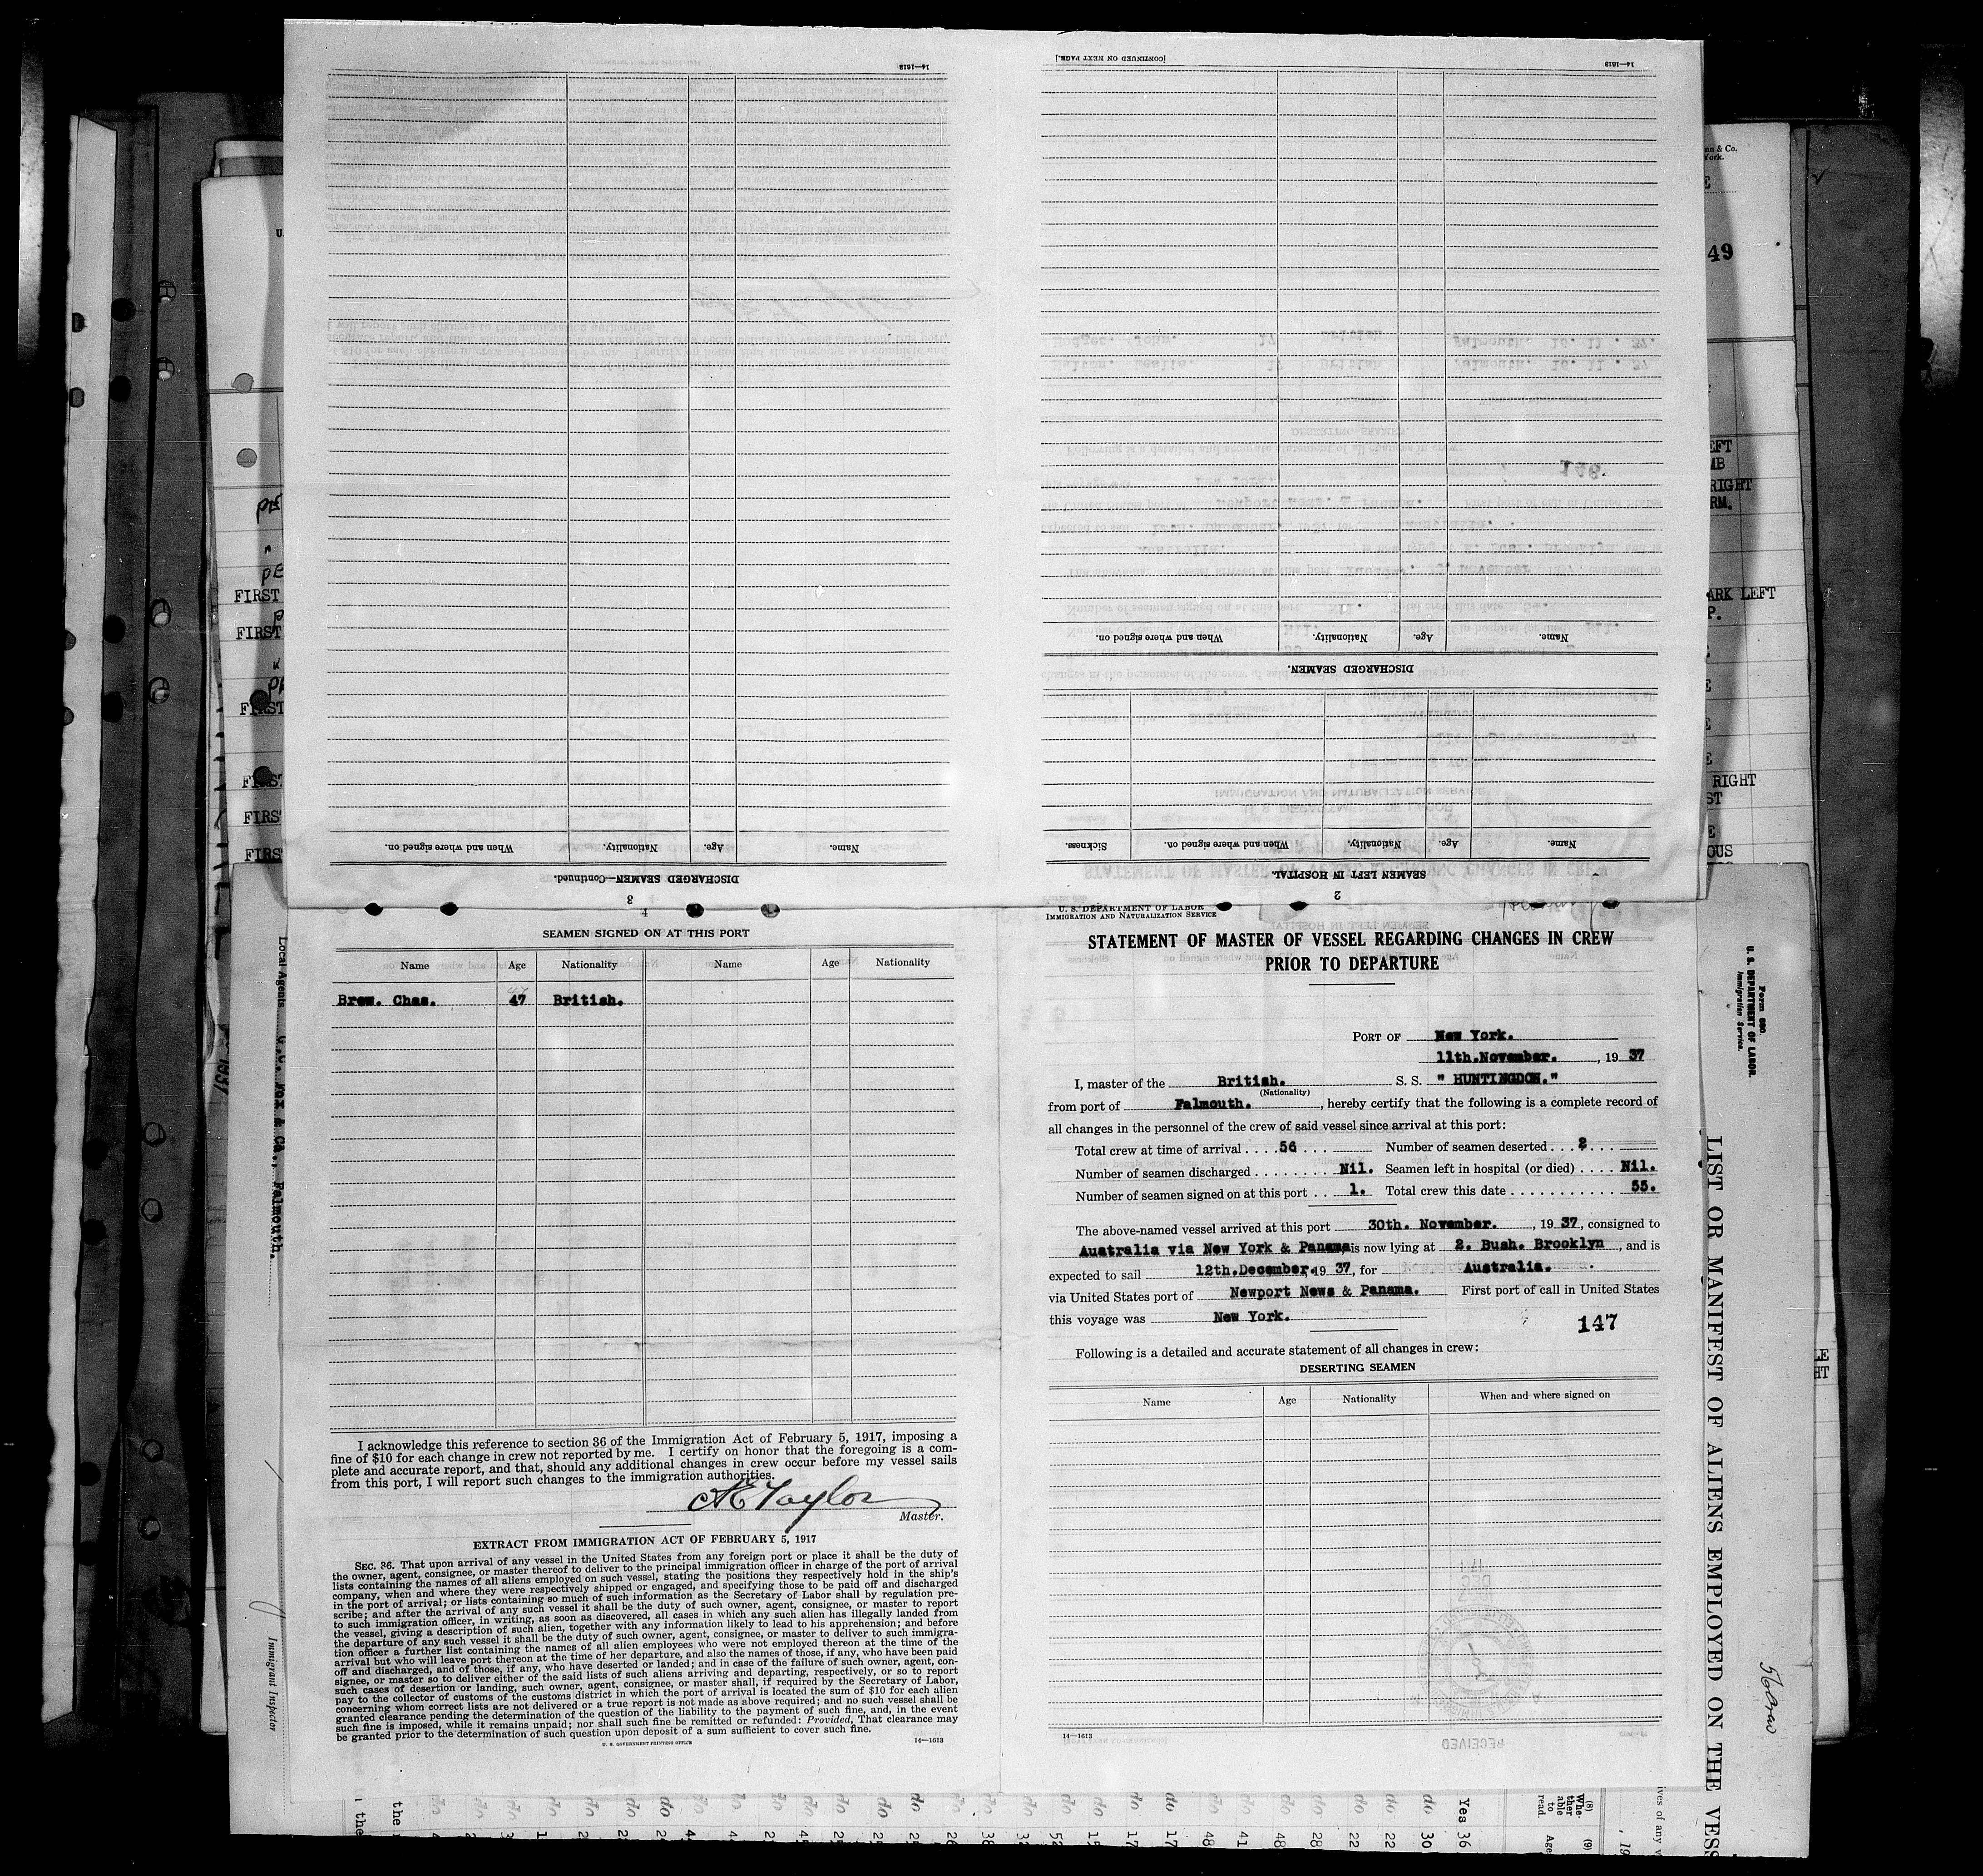 14—1613
[CONTINUED ON NEXT PAGE.]
14—1613
When and where signed on.
Nationality.
Age.
Name.
DISCHARGED SEAMEN—Continued.
3
When and where signed on.
Nationality.
Age.
Name.
DISCHARGED SEAMEN.
Sickness.
When and where signed on.
Nationality.
Age.
Name.
SEAMEN LEFT IN HOSPITAL.
2
4
SEAMEN SIGNED ON AT THIS PORT
Name Age Nationality Name Age Nationality
Brew. Chas. 47 British.
I acknowledge this reference to section 36 of the Immigration Act of February 5, 1917, imposing a
fine of $10 for each change in crew not reported by me. I certify on honor that the foregoing is a com-
plete and accurate report, and that, should any additional changes in crew occur before my vessel sails
from this port, I will report such changes to the immigration authorities.
Taylor
Master.
EXTRACT FROM IMMIGRATION ACT OF FEBRUARY 5, 1917
SEC. 36. That upon arrival of any vessel in the United States from any foreign port or place it shall be the duty of
the owner, agent, consignee, or master thereof to deliver to the principal immigration officer in charge of the port of arrival
lists containing the names of all aliens employed on such vessel, stating the positions they respectively hold in the ship's
company, when and where they were respectively shipped or engaged, and specifying those to be paid off and discharged
in the port of arrival; or lists containing so much of such information as the Secretary of Labor shall by regulation pre-
scribe; and after the arrival of any such vessel it shall be the duty of such owner, agent, consignee, or master to report
to such immigration officer, in writing, as soon as discovered, all cases in which any such alien has illegally landed from
the vessel, giving a description of such alien, together with any information likely to lead to his apprehension; and before
the departure of any such vessel it shall be the duty of such owner, agent, consignee, or master to deliver to such immigra-
tion officer a further list containing the names of all alien employees who were not employed thereon at the time of the
arrival but who will leave port thereon at the time of her departure, and also the names of those, if any, who have been paid
off and discharged, and of those, if any, who have deserted or landed; and in case of the failure of such owner, agent, con-
signee, or master so to deliver either of the said lists of such aliens arriving and departing, respectively, or so to report
such cases of desertion or landing, such owner, agent, consignee, or master shall, if required by the Secretary of Labor,
pay to the collector of customs of the customs district in which the port of arrival is located the sum of $10 for each alien
concerning whom correct lists are not delivered or a true report is not made as above required; and no such vessel shall be
granted clearance pending the determination of the question of the liability to the payment of such fine, and, in the event
such fine is imposed, while it remains unpaid; nor shall such fine be remitted or refunded: Provided, That clearance may
be granted prior to the determination of such question upon deposit of a sum sufficient to cover such fine.
U. S. GOVERNMENT PRINTING OFFICE 14—1613
U. S. DEPARTMENT OF LABOR
IMMIGRATION AND NATURALIZATION SERVICE
STATEMENT OF MASTER OF VESSEL REGARDING CHANGES IN CREW
PRIOR TO DEPARTURE
PORT OF New York.
11th.November. , 19 37
I, master of the British. S. S. " HUNTINGDON."
(Nationality)
from port of Falmouth. , hereby certify that the following is a complete record of
all changes in the personnel of the crew of said vessel since arrival at this port:
Total crew at time of arrival . . . . 56 . . . . Number of seamen deserted . . . 2
Number of seamen discharged . . . . . . . . Nil. Seamen left in hospital (or died) . . . . Nil.
Number of seamen signed on at this port . . 1. Total crew this date . . . . . . . . . . . . 55.
The above-named vessel arrived at this port 30th. November. , 19 37, consigned to
Australia via New York & Panama, is now lying at 2. Bush. Brooklyn , and is
expected to sail 12th.December. 19 37, for Australia.
via United States port of Newport News & Panama. First port of call in United States
this voyage was New York.
147
Following is a detailed and accurate statement of all changes in crew:
DESERTING SEAMEN
Name Age Nationality When and where signed on
14—1613
RECEIVED
Form 680.
U. S. DEPARTMENT OF LABOR.
Immigration Service.
LIST OR MANIFEST OF ALIENS EMPLOYED ON THE VESS
Local Agents
Fox & Co., Falmouth.
Immigrant Inspector
49
RIGHT
ARK LEFT
P.
RIGHT
FIRST
FIRST